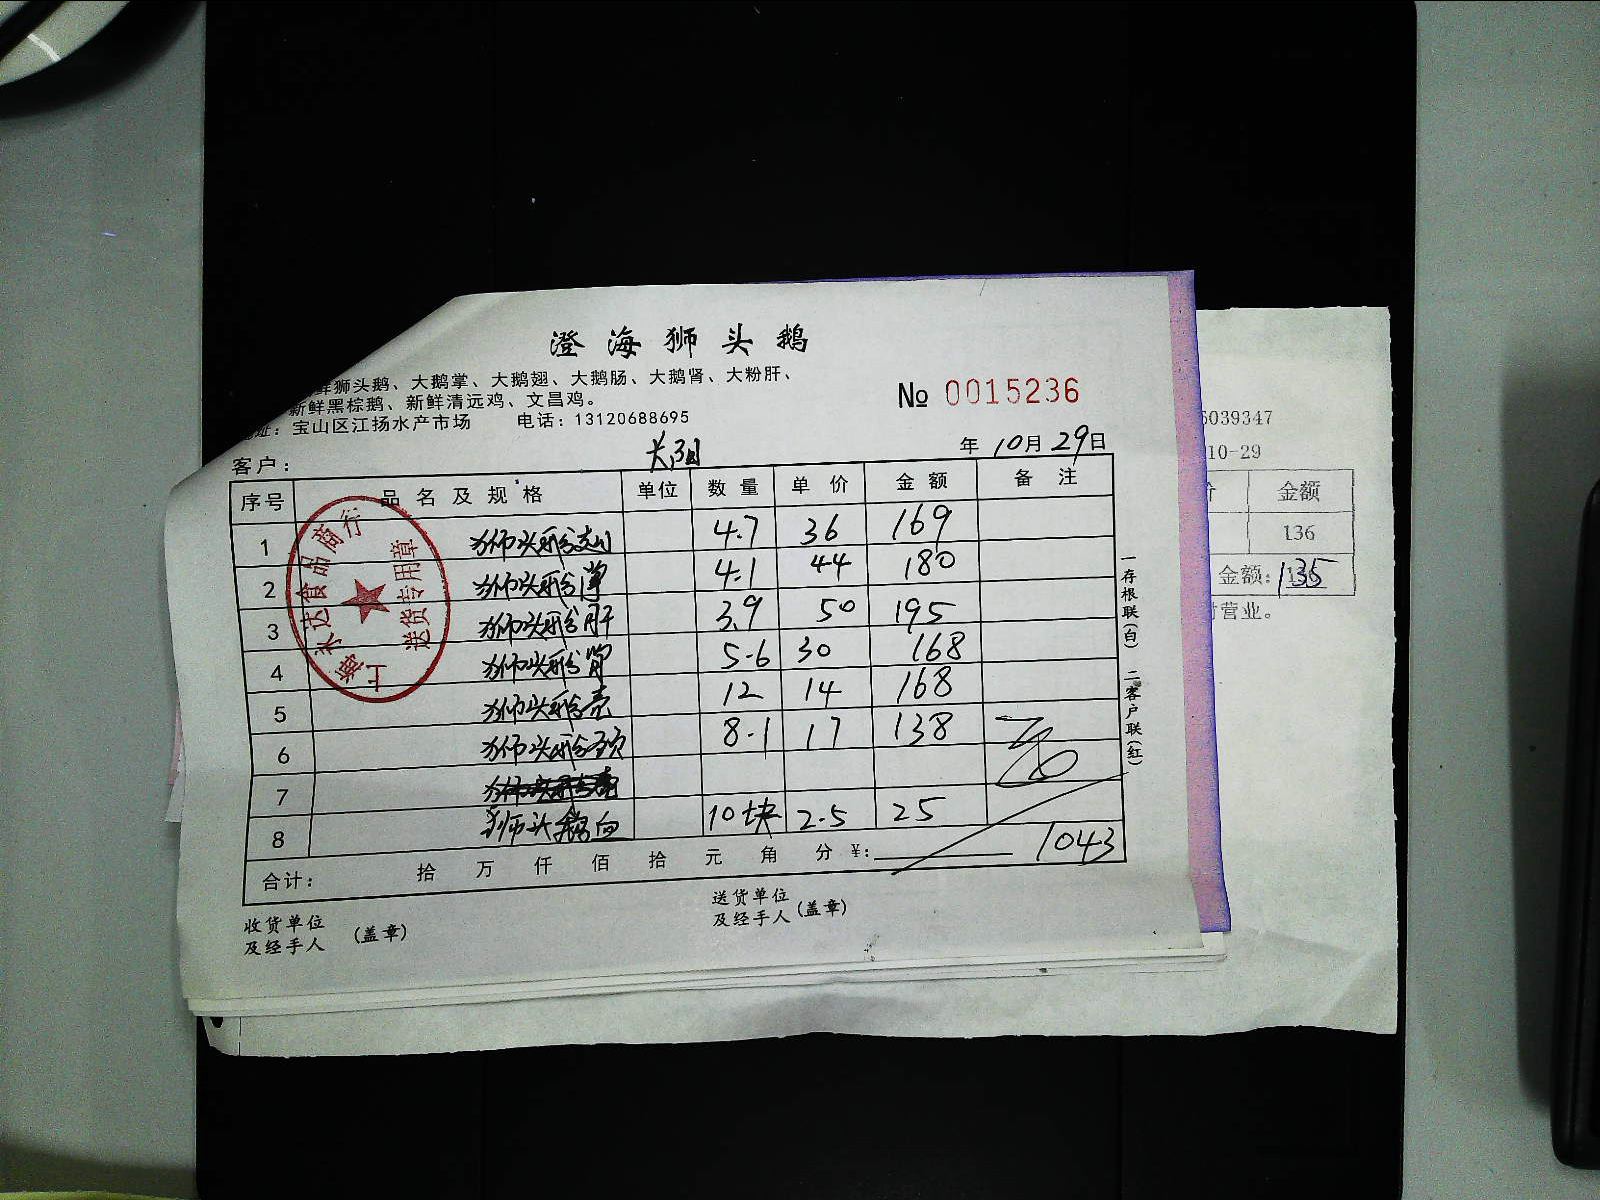 澄海狮头鹅
鲜狮头鹅、大鹅掌、大鹅翅、大鹅肠、大鹅肾、大粉肝、
新鲜黑棕鹅、新鲜清远鸡、文昌鸡。
地址：宝山区江扬水产市场 电话：13120688695
№ 0015236
客户： 年 10月 29日
序号 品名及规格 单位 数量 单价 金额 备注
1 狮头鹅 4.7 36 169
2 狮头鹅 4.1 44 180
3 狮头鹅肝 3.9 50 195
4 狮头鹅 5.6 30 168
5 狮头鹅壳 12 14 168
6 狮头鹅 8.1 17 138
7
8 狮头鹅血 10块 2.5 25
合计： 拾 万 仟 佰 拾 元 角 分 ¥： 1043
收货单位
及经手人 （盖章）
送货单位
及经手人（盖章）
一存根联(白) 二客户联(红)
上海永达食品商行
送货专用章
5039347
10-29
价 金额
136
金额: 135
付营业。